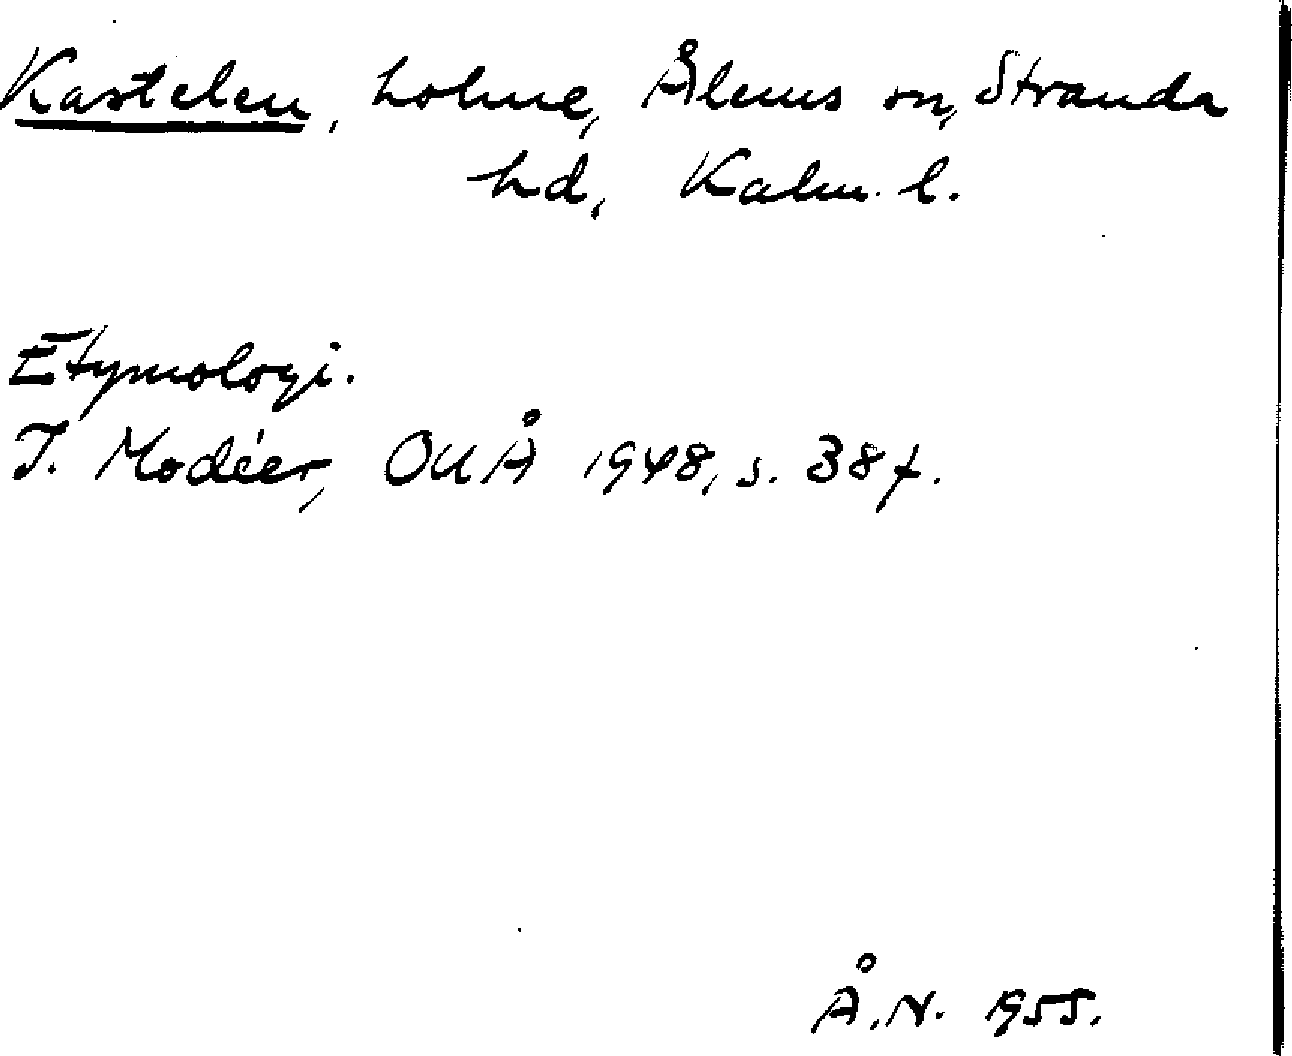 Kastelen, holme, Ålems sn, Stranda
hd, Kalm. l.
Etymologi.
I. Modéer, OUÅ 1948, s. 38 f.
Å.N. 1955.